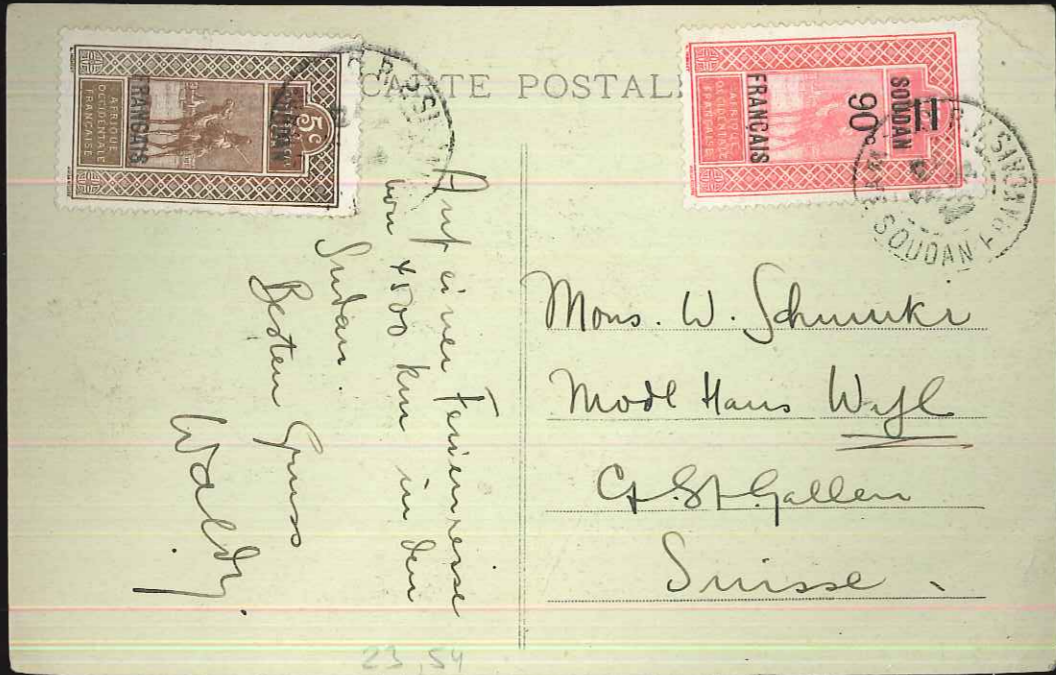 CARTE POSTALE
5c
AFRIQUE
OCCIDENTALE
FRANÇAISE
SOUDAN
FRANÇAIS
90c
AFRIQUE
OCCIDENTALE
FRANÇAISE
SOUDAN
FRANÇAIS
SOUDAN FRANÇAIS
Auf einer Ferienreise
von 4500 km in den
Sudan.
Besten Gruss
Waldy.
Mons. W.
Modl Haus Wyl
Ct. St. Gallen
Suisse
23,54